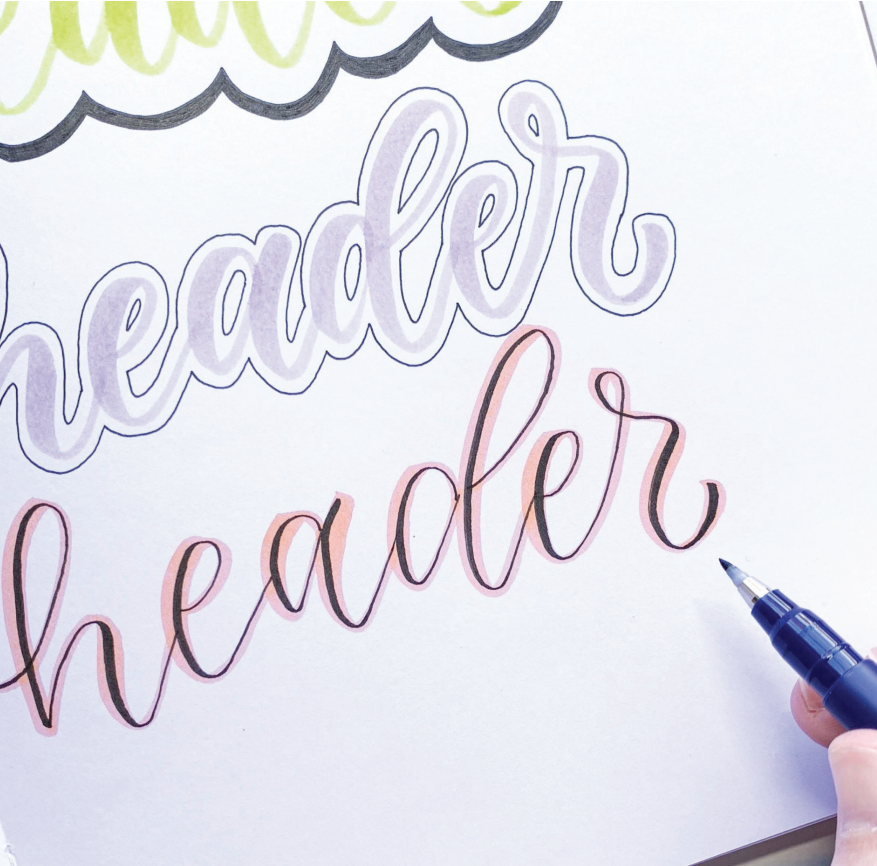 header
header